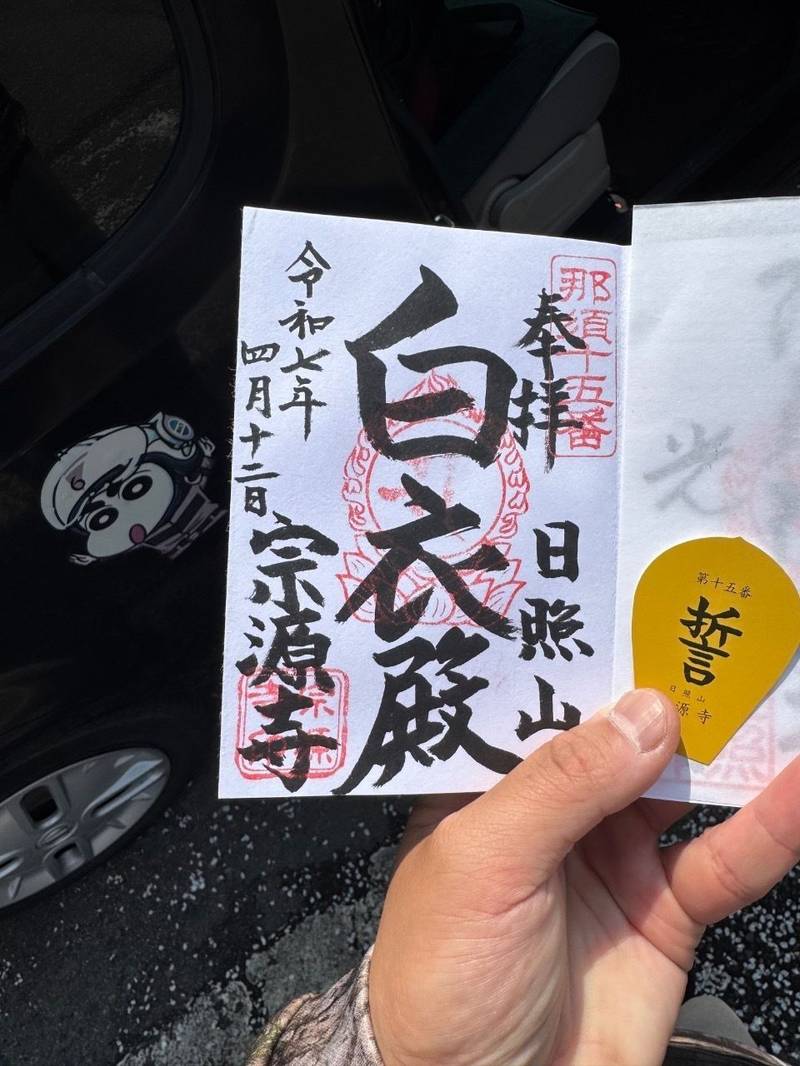 那須十五番
奉拝
日照山
白衣殿
令和七年
四月十二日
宗源寺
光
第十五番
誓
日照山
源寺